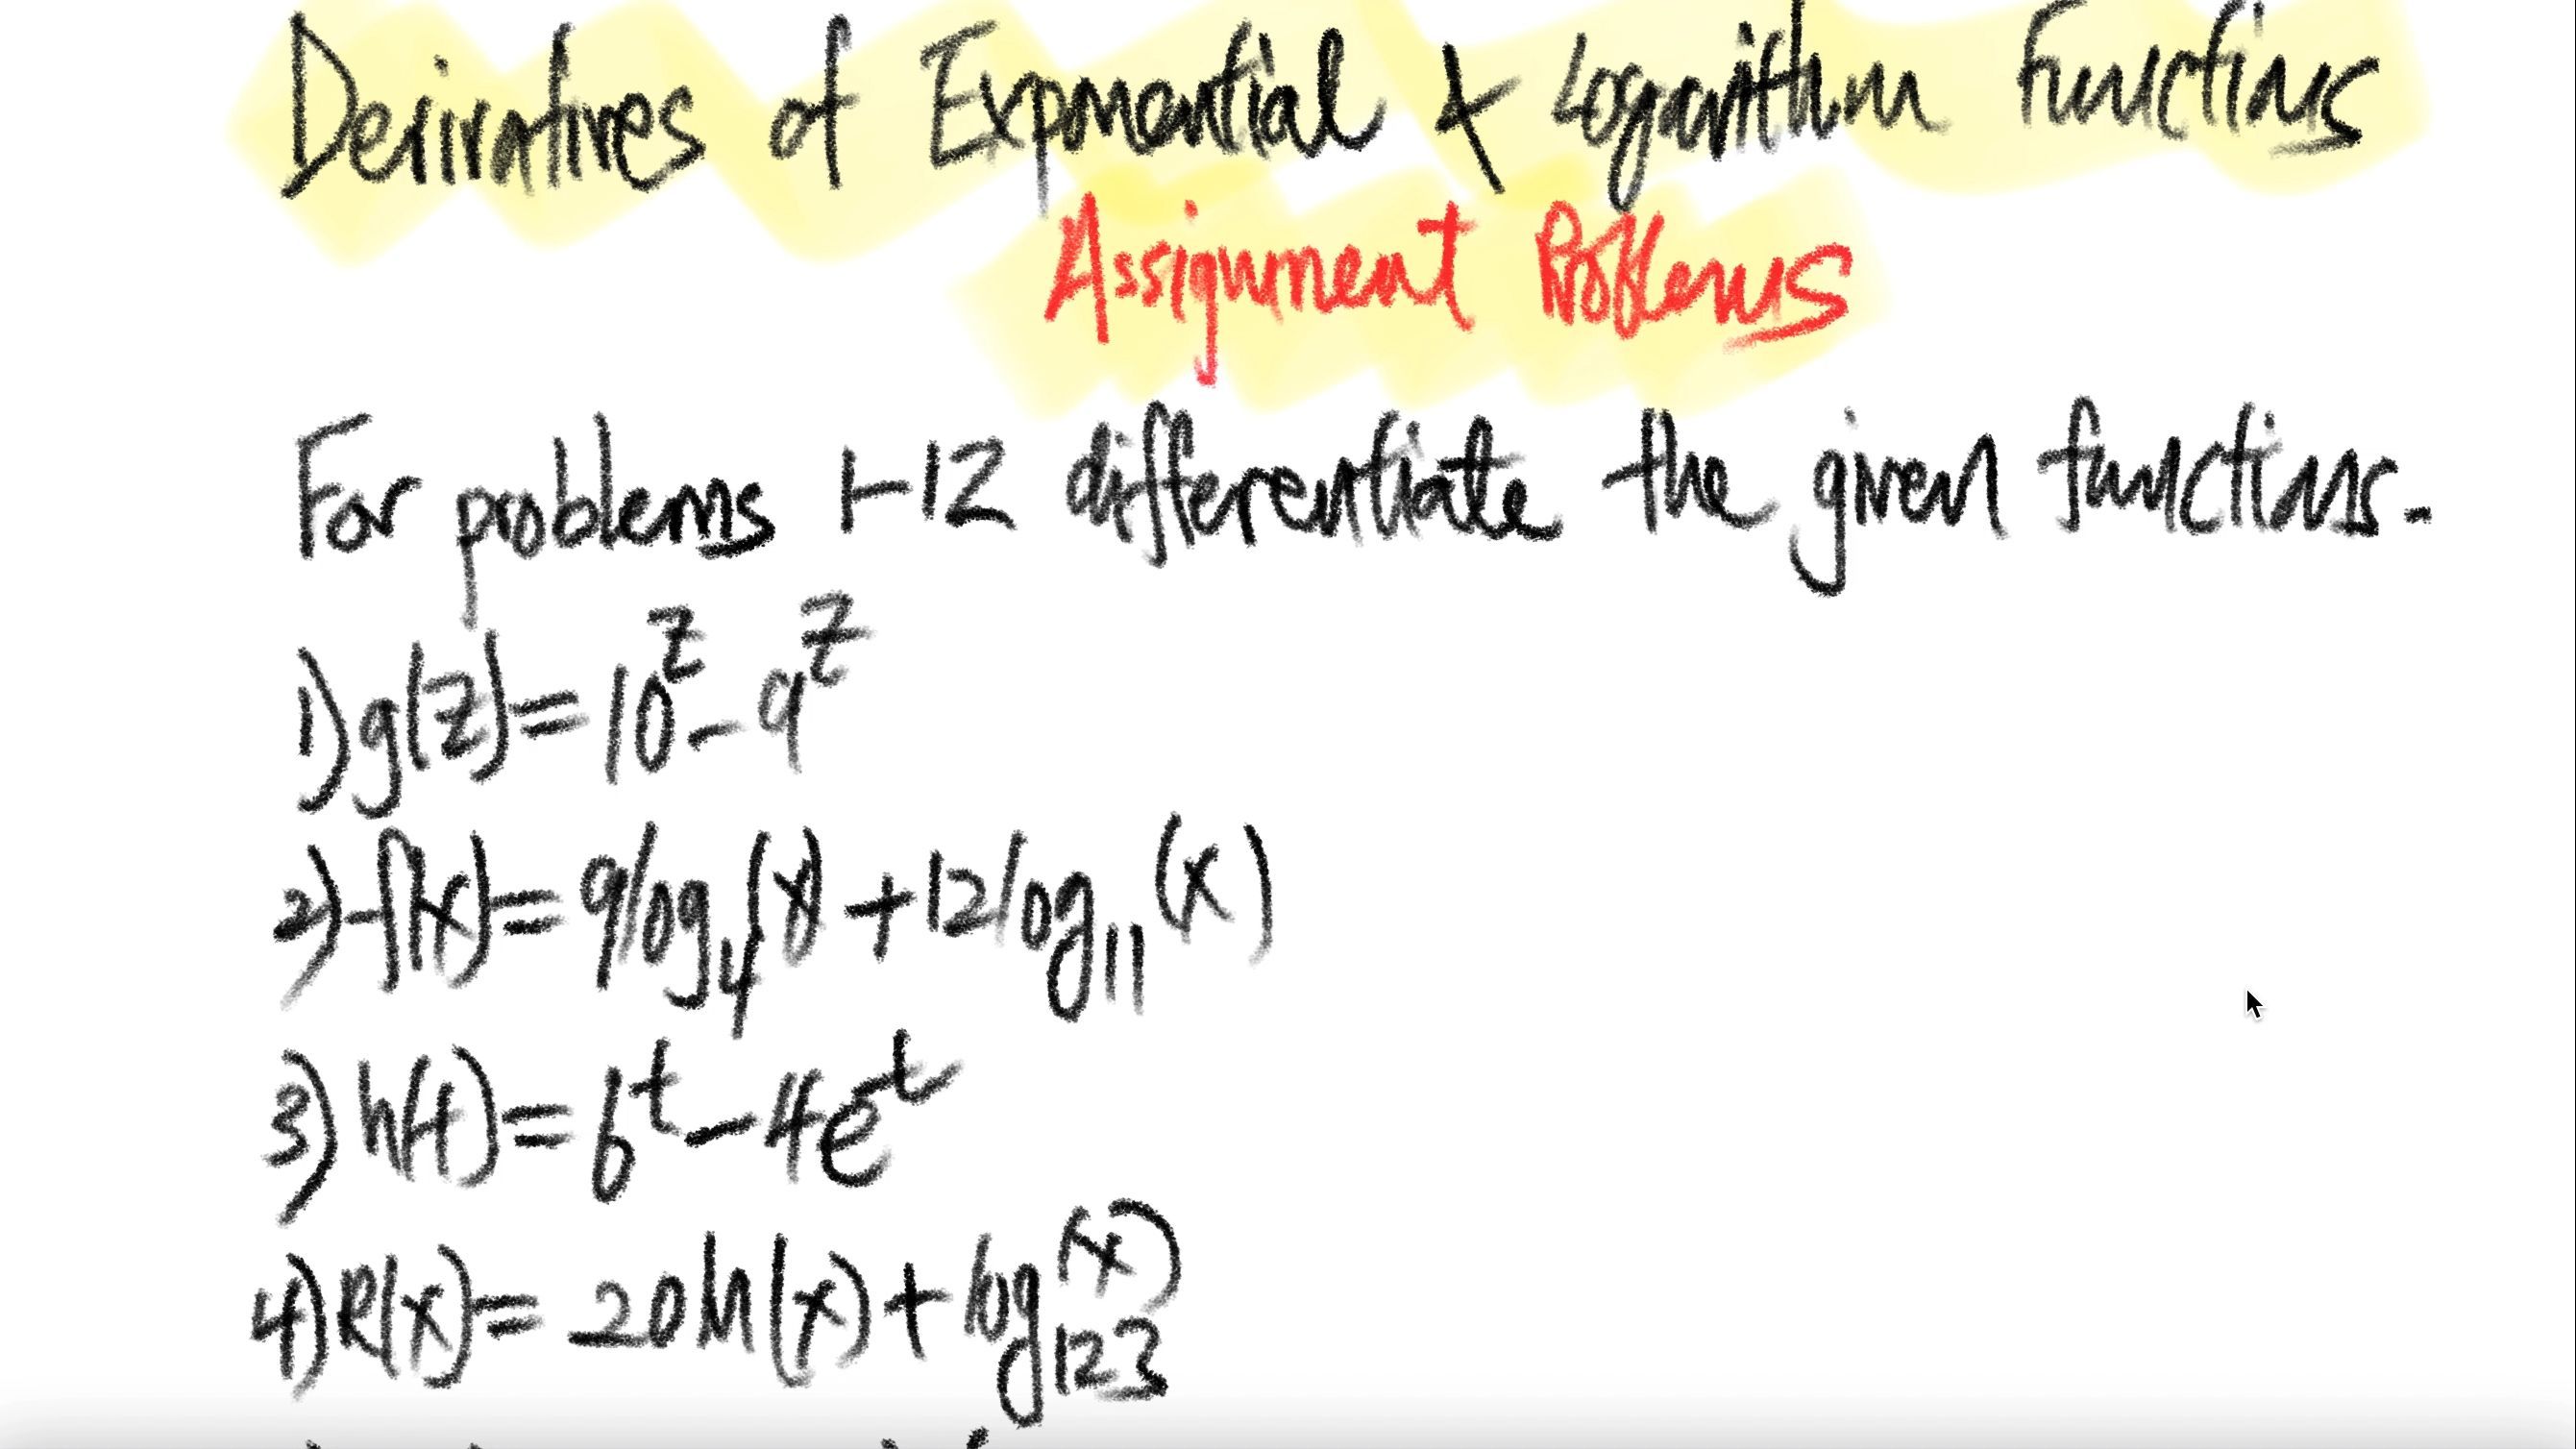 Derivatives of Exponential & Logarithm Functions
Assignment Problems
For problems 1-12 differentiate the given functions.
1) g(z) = 10^z - 9^z
2) f(x) = 9log_4(x) + 12log_11(x)
3) h(t) = 6^t - 4e^t
4) R(x) = 20ln(x) + log_123(x)